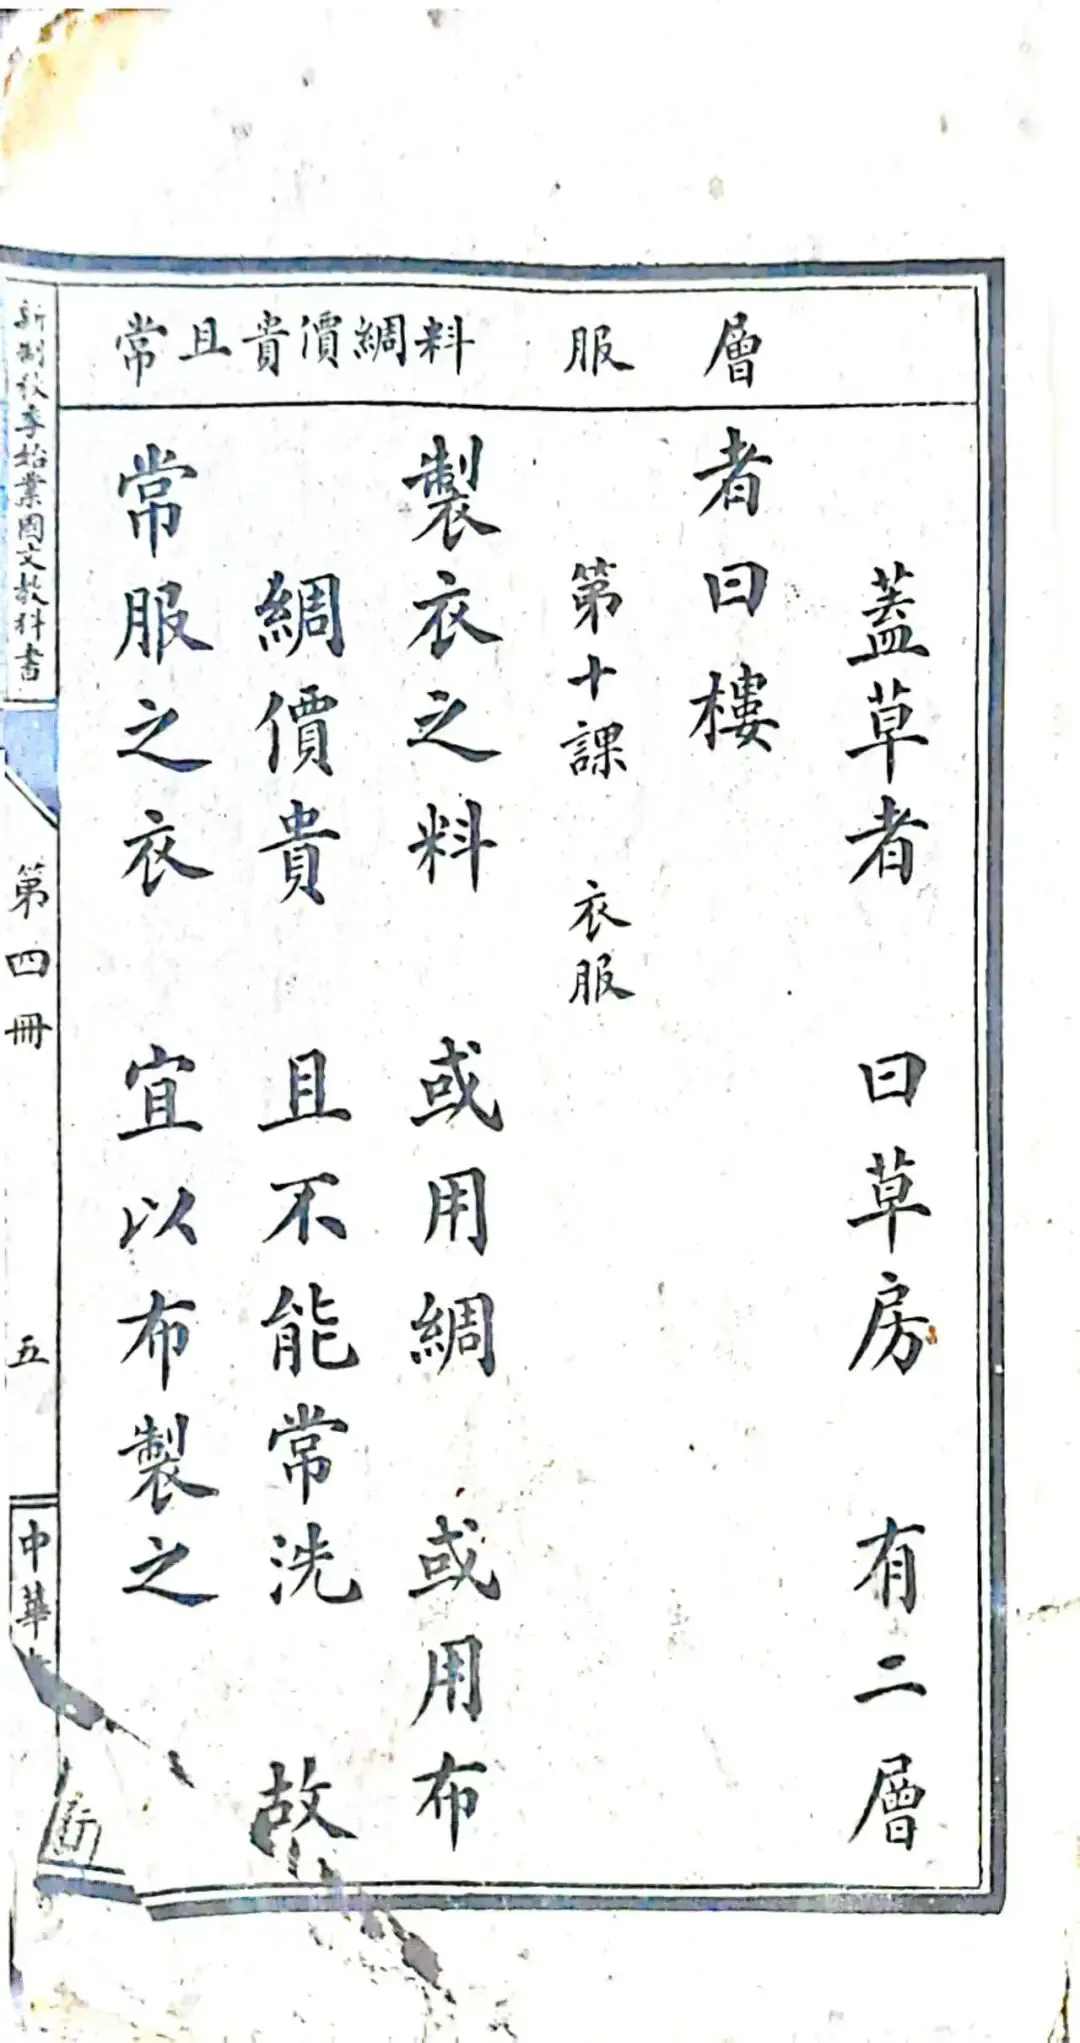 層
服
料綢價貴且常
蓋草者　曰草房　有二層
者曰樓
第十課　衣服
製衣之料　或用綢　或用布
綢價貴　且不能常洗　故
常服之衣　宜以布製之
新制秋季始業國文教科書
第四冊
五
中華